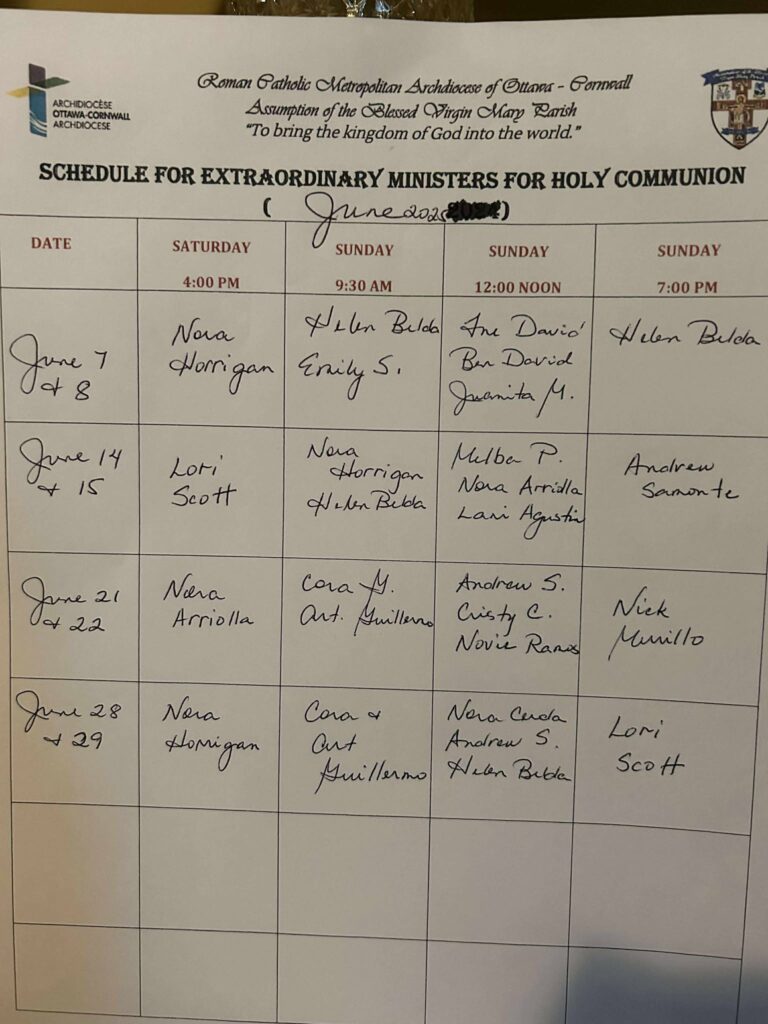 ARCHIDIOCÈSE
OTTAWA-CORNWALL
ARCHDIOCESE
Roman Catholic Metropolitan Archdiocese of Ottawa - Cornwall
Assumption of the Blessed Virgin Mary Parish
"To bring the kingdom of God into the world."
SCHEDULE FOR EXTRAORDINARY MINISTERS FOR HOLY COMMUNION
( June 2025 )
DATE
SATURDAY
4:00 PM
SUNDAY
9:30 AM
SUNDAY
12:00 NOON
SUNDAY
7:00 PM
June 7
& 8
Nora
Horrigan
Helen Belda
Emily S.
David
Ben David
Juanita M.
Helen Belda
June 14
& 15
Lori
Scott
Nora
Horrigan
Helen Belda
Melba P.
Nora Arriolla
Lani Agustin
Andrew
Samonte
June 21
& 22
Nora
Arriolla
Cora G.
Art. Guillermo
Andrew S.
Cristy C.
Novie Ramos
Nick
Murillo
June 28
& 29
Nora
Horrigan
Cora &
Art
Guillermo
Nora Cerda
Andrew S.
Helen Belda
Lori
Scott